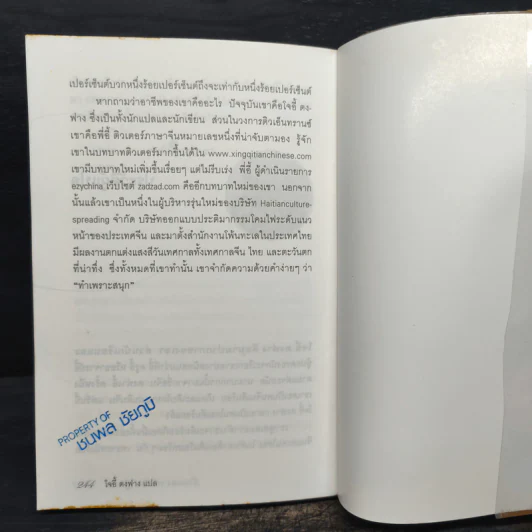 เปอร์เซ็นต์บวกหนึ่งร้อยเปอร์เซ็นต์ถึงจะเท่ากับหนึ่งร้อยเปอร์เซ็นต์
หากถามว่าอาชีพของเขาคืออะไร ปัจจุบันเขาคือใจอี้ ดง-
ฟาง ซึ่งเป็นทั้งนักแปลและนักเขียน ส่วนในวงการติวเอ็นทรานซ์
เขาคือพี่อี้ ติวเตอร์ภาษาจีนหมายเลขหนึ่งที่น่าจับตามอง รู้จัก
เขาในบทบาทติวเตอร์มากขึ้นได้ใน www.xingqitianchinese.com
เขามีบทบาทใหม่เพิ่มขึ้นเรื่อยๆ แต่ไม่รีบเร่ง พี่อี้ ผู้ดำเนินรายการ
ezychina เว็บไซต์ zadzad.com คืออีกบทบาทใหม่ของเขา นอกจาก
นั้นแล้วเขาเป็นหนึ่งในผู้บริหารรุ่นใหม่ของบริษัท Haitianculture-
spreading จำกัด บริษัทออกแบบประติมากรรมโคมไฟระดับแนว
หน้าของประเทศจีน และมาตั้งสำนักงานโพ้นทะเลในประเทศไทย
มีผลงานตกแต่งแสงสีวันเทศกาลทั้งเทศกาลจีน ไทย และตะวันตก
ที่น่าทึ่ง ซึ่งทั้งหมดที่เขาทำนั้น เขาจำกัดความด้วยคำง่ายๆ ว่า
“ทำเพราะสนุก”
PROPERTY OF
ชนพล ชัยภูมิ
ใจอี้ ดงฟาง แปล